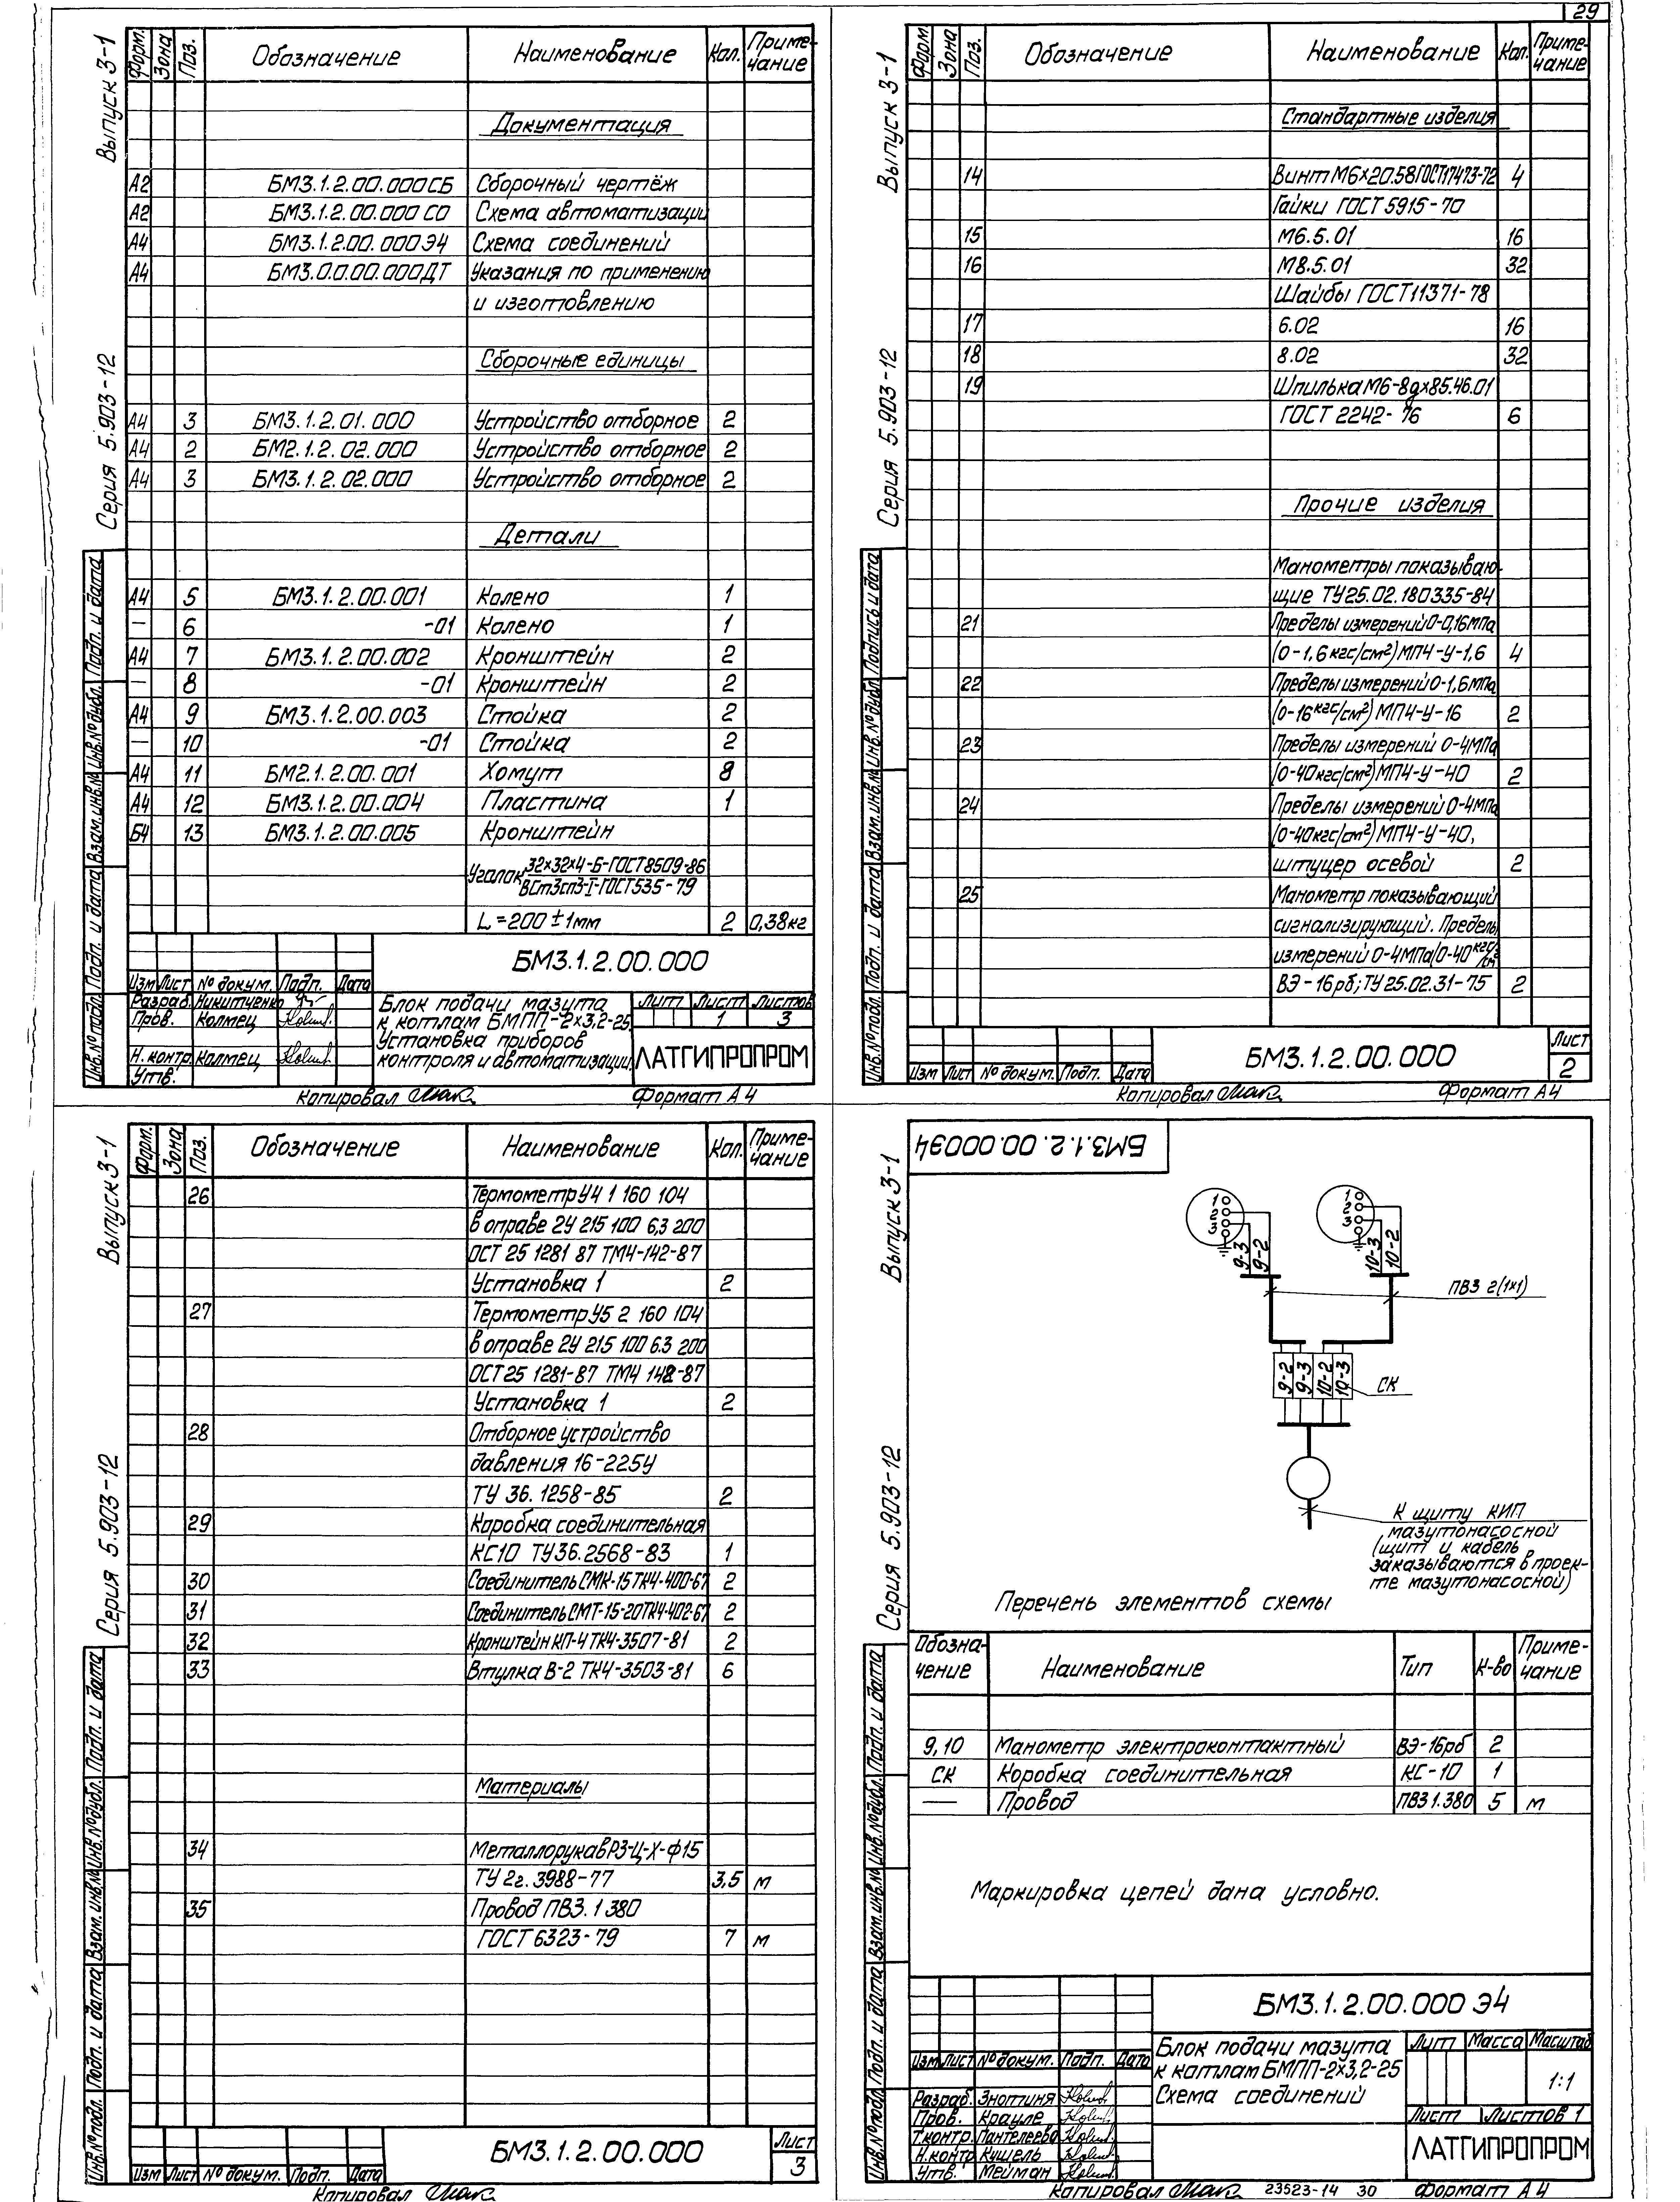 29
Выпуск 3-1
Серия 5.903-12
Форм. Зона Поз. Обозначение Наименование Кол. Приме-чание
Документация
А2 БМ3.1.2.00.000СБ Сборочный чертёж
А2 БМ3.1.2.00.000 СО Схема автоматизации
А4 БМ3.1.2.00.000Э4 Схема соединений
А4 БМ3.0.0.00.000ДТ Указания по применению
и изготовлению
Сборочные единицы
А4 3 БМ3.1.2.01.000 Устройство отборное 2
А4 2 БМ2.1.2.02.000 Устройство отборное 2
А4 3 БМ3.1.2.02.000 Устройство отборное 2
Детали
А4 5 БМ3.1.2.00.001 Колено 1
— 6 -01 Колено 1
А4 7 БМ3.1.2.00.002 Кронштейн 2
— 8 -01 Кронштейн 2
А4 9 БМ3.1.2.00.003 Стойка 2
— 10 -01 Стойка 2
А4 11 БМ2.1.2.00.001 Хомут 8
А4 12 БМ3.1.2.00.004 Пластина 1
Б4 13 БМ3.1.2.00.005 Кронштейн
Уголок 32×32×4-Б-ГОСТ8509-86
ВСт3сп3-I-ГОСТ535-79
L=200±1мм 2 0,38кг
Инв.№подл. Подп. и дата Взам.инв.№ Инв.№дубл. Подп. и дата
БМ3.1.2.00.000
Изм Лист №докум. Подп. Дата
Разраб. Никитченко
Пров. Колмец
Н.контр. Колмец
Утв.
Блок подачи мазута
к котлам БМПП-2×3,2-25.
Установка приборов
контроля и автоматизации.
Лит Лист Листов
1 3
ЛАТГИПРОПРОМ
Копировал Формат А4
Выпуск 3-1
Серия 5.903-12
Форм. Зона Поз. Обозначение Наименование Кол. Приме-чание
Стандартные изделия
14 Винт М6×20.58ГОСТ17473-72 4
Гайки ГОСТ 5915-70
15 М6.5.01 16
16 М8.5.01 32
Шайбы ГОСТ11371-78
17 6.02 16
18 8.02 32
19 Шпилька М6-8g×85.46.01
ГОСТ 2242-76 6
Прочие изделия
Манометры показываю-
щие ТУ25.02.180335-84
21 Пределы измерений 0-0,16МПа
(0-1,6кгс/см²)МП4-У-1,6 4
22 Пределы измерений 0-1,6МПа
(0-16кгс/см²)МП4-У-16 2
23 Пределы измерений 0-4МПа
(0-40кгс/см²)МП4-У-40 2
24 Пределы измерений 0-4МПа
(0-40кгс/см²)МП4-У-40,
штуцер осевой 2
25 Манометр показывающий
сигнализирующий. Пределы
измерений 0-4МПа(0-40кгс/см²
ВЭ-16рб; ТУ25.02.31-75 2
Инв.№подл. Подп. и дата Взам.инв.№ Инв.№дубл. Подпись и дата
Изм Лист №докум. Подп. Дата
БМ3.1.2.00.000
Лист
2
Копировал Формат А4
Выпуск 3-1
Серия 5.903-12
Форм. Зона Поз. Обозначение Наименование Кол. Приме-чание
26 Термометр У4 1 160 104
в оправе 2У 215 100 6,3 200
ОСТ 25 1281 87 ТМ4-142-87
Установка 1 2
27 Термометр У5 2 160 104
в оправе 2У 215 100 6.3 200
ОСТ 25 1281-87 ТМ4 142-87
Установка 1 2
28 Отборное устройство
давления 16-225У
ТУ 36.1258-85 2
29 Коробка соединительная
КС10 ТУ36.2568-83 1
30 Соединитель СМК-15ТК4-400-67 2
31 Соединитель СМТ-15-20ТК4-402-67 2
32 Кронштейн КП-4 ТК4-3507-81 2
33 Втулка В-2 ТК4-3503-81 6
Материалы
34 Металлорукав РЗ-Ц-Х-Ф15
ТУ 22.3988-77 3,5 м
35 Провод ПВ3.1 380
ГОСТ 6323-79 7 м
Инв.№подл. Подп. и дата Взам.инв.№ Инв.№дубл. Подп. и дата
Изм Лист №докум. Подп. Дата
БМ3.1.2.00.000
Лист
3
Копировал
Выпуск 3-1
Серия 5.903-12
БМ3.1.2.00.000Э4
1 2 3 9-3 9-2
1 2 3 10-3 10-2
ПВ3 2(1×1)
9-2 9-3 10-2 10-3
СК
К щиту КИП
мазутонасосной
(щит и кабель
заказываются в проек-
те мазутонасосной)
Перечень элементов схемы
Обозна-чение Наименование Тип К-во Приме-чание
9,10 Манометр электроконтактный ВЭ-16рб 2
СК Коробка соединительная КС-10 1
— Провод ПВ3 1.380 5 м
Маркировка цепей дана условно.
Инв.№подл. Подп. и дата Взам.инв.№ Инв.№дубл. Подп. и дата
БМ3.1.2.00.000 Э4
Изм Лист №докум. Подп. Дата
Разраб. Знотиня
Пров. Крауле
Т.контр. Пантелеева
Н.контр Кишель
Утв. Мейман
Блок подачи мазута
к котлам БМПП-2×3,2-25
Схема соединений
Лит Масса Масштаб
1:1
Лист Листов 1
ЛАТГИПРОПРОМ
Копировал 23523-14 30 Формат А4